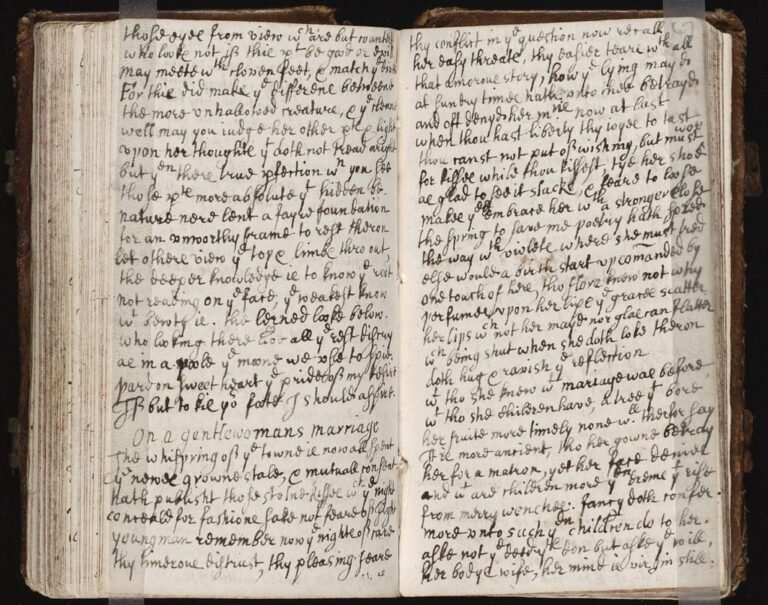 those eyes from view wch are but counted
who looke not if this pt be good or evill
may meete wth cloven feet, & match ye
For this did make ye difference betweene
the more unhallowed creature, & ye cleane
well may you iudge her other pts & light
upon her thoughts yt doth not tread aright
but yn there true pfection wn you see
those pts more absolute yt hidden be.
nature nere lent a fayre foundation
for an unworthy frame to rest theron
let others view ye tops & limbs thro out,
the deeper knowledge is to know ye root
not reading on ye face, ye weakest know
wt bewty is. the lerned looke below.
who looking there doe all ye rest discry
as in a poole ye moone we use to spie.
pardon sweet heart ye pride of my desire
If but to kis yor foote I should aspire.
On a gentlewomans marriage
The whispring of ye towne is now all spent
ye newes growne stale, & mutuall consent
hath publisht those stolne kisses wch ye night
conceald for fashions sake not feare of light
young man remember now ye night of care
thy timerous distrust, thy pleasing feare
thy conflict in ye question now recall
her easy threats, thy easier teares wth all
that amorous story, how ye lying mayd
at sundry times hath unto thee betrayd
and oft denyd her now at last
when thou hast liberty thy ioyes to tast
thou canst not put of wishing, but must
for kisses while thou kissest tye her shoe
as glad to see it slacke, & feare to loose
makes yee embrace her wth a stronger close
the spring to save me poetry hath spred
the way wth violets where she must tred
else would a birth start up comanded by
one touch of hers, tho flora knew not why
perfumes upon her lips ye graces scatter
her lips wch not her mayds nor glas can flatter
wch being shut when she doth looke theron
doth hug & ravish ye reflection.
wt tho she knew wt mariage was before
wt tho she children have, a tree yt bore
her fruite more timely none will therfore say
Itt is more ancient, tho her gowne betray
her for a matron, yet her face denies
and wt are children more yn dreames yt rise
from merry wenches: fancy doth confer
more unto such yn children do to her.
aske not ye deedes don but aske ye will,
her bodys wife, her mind is virgin still.